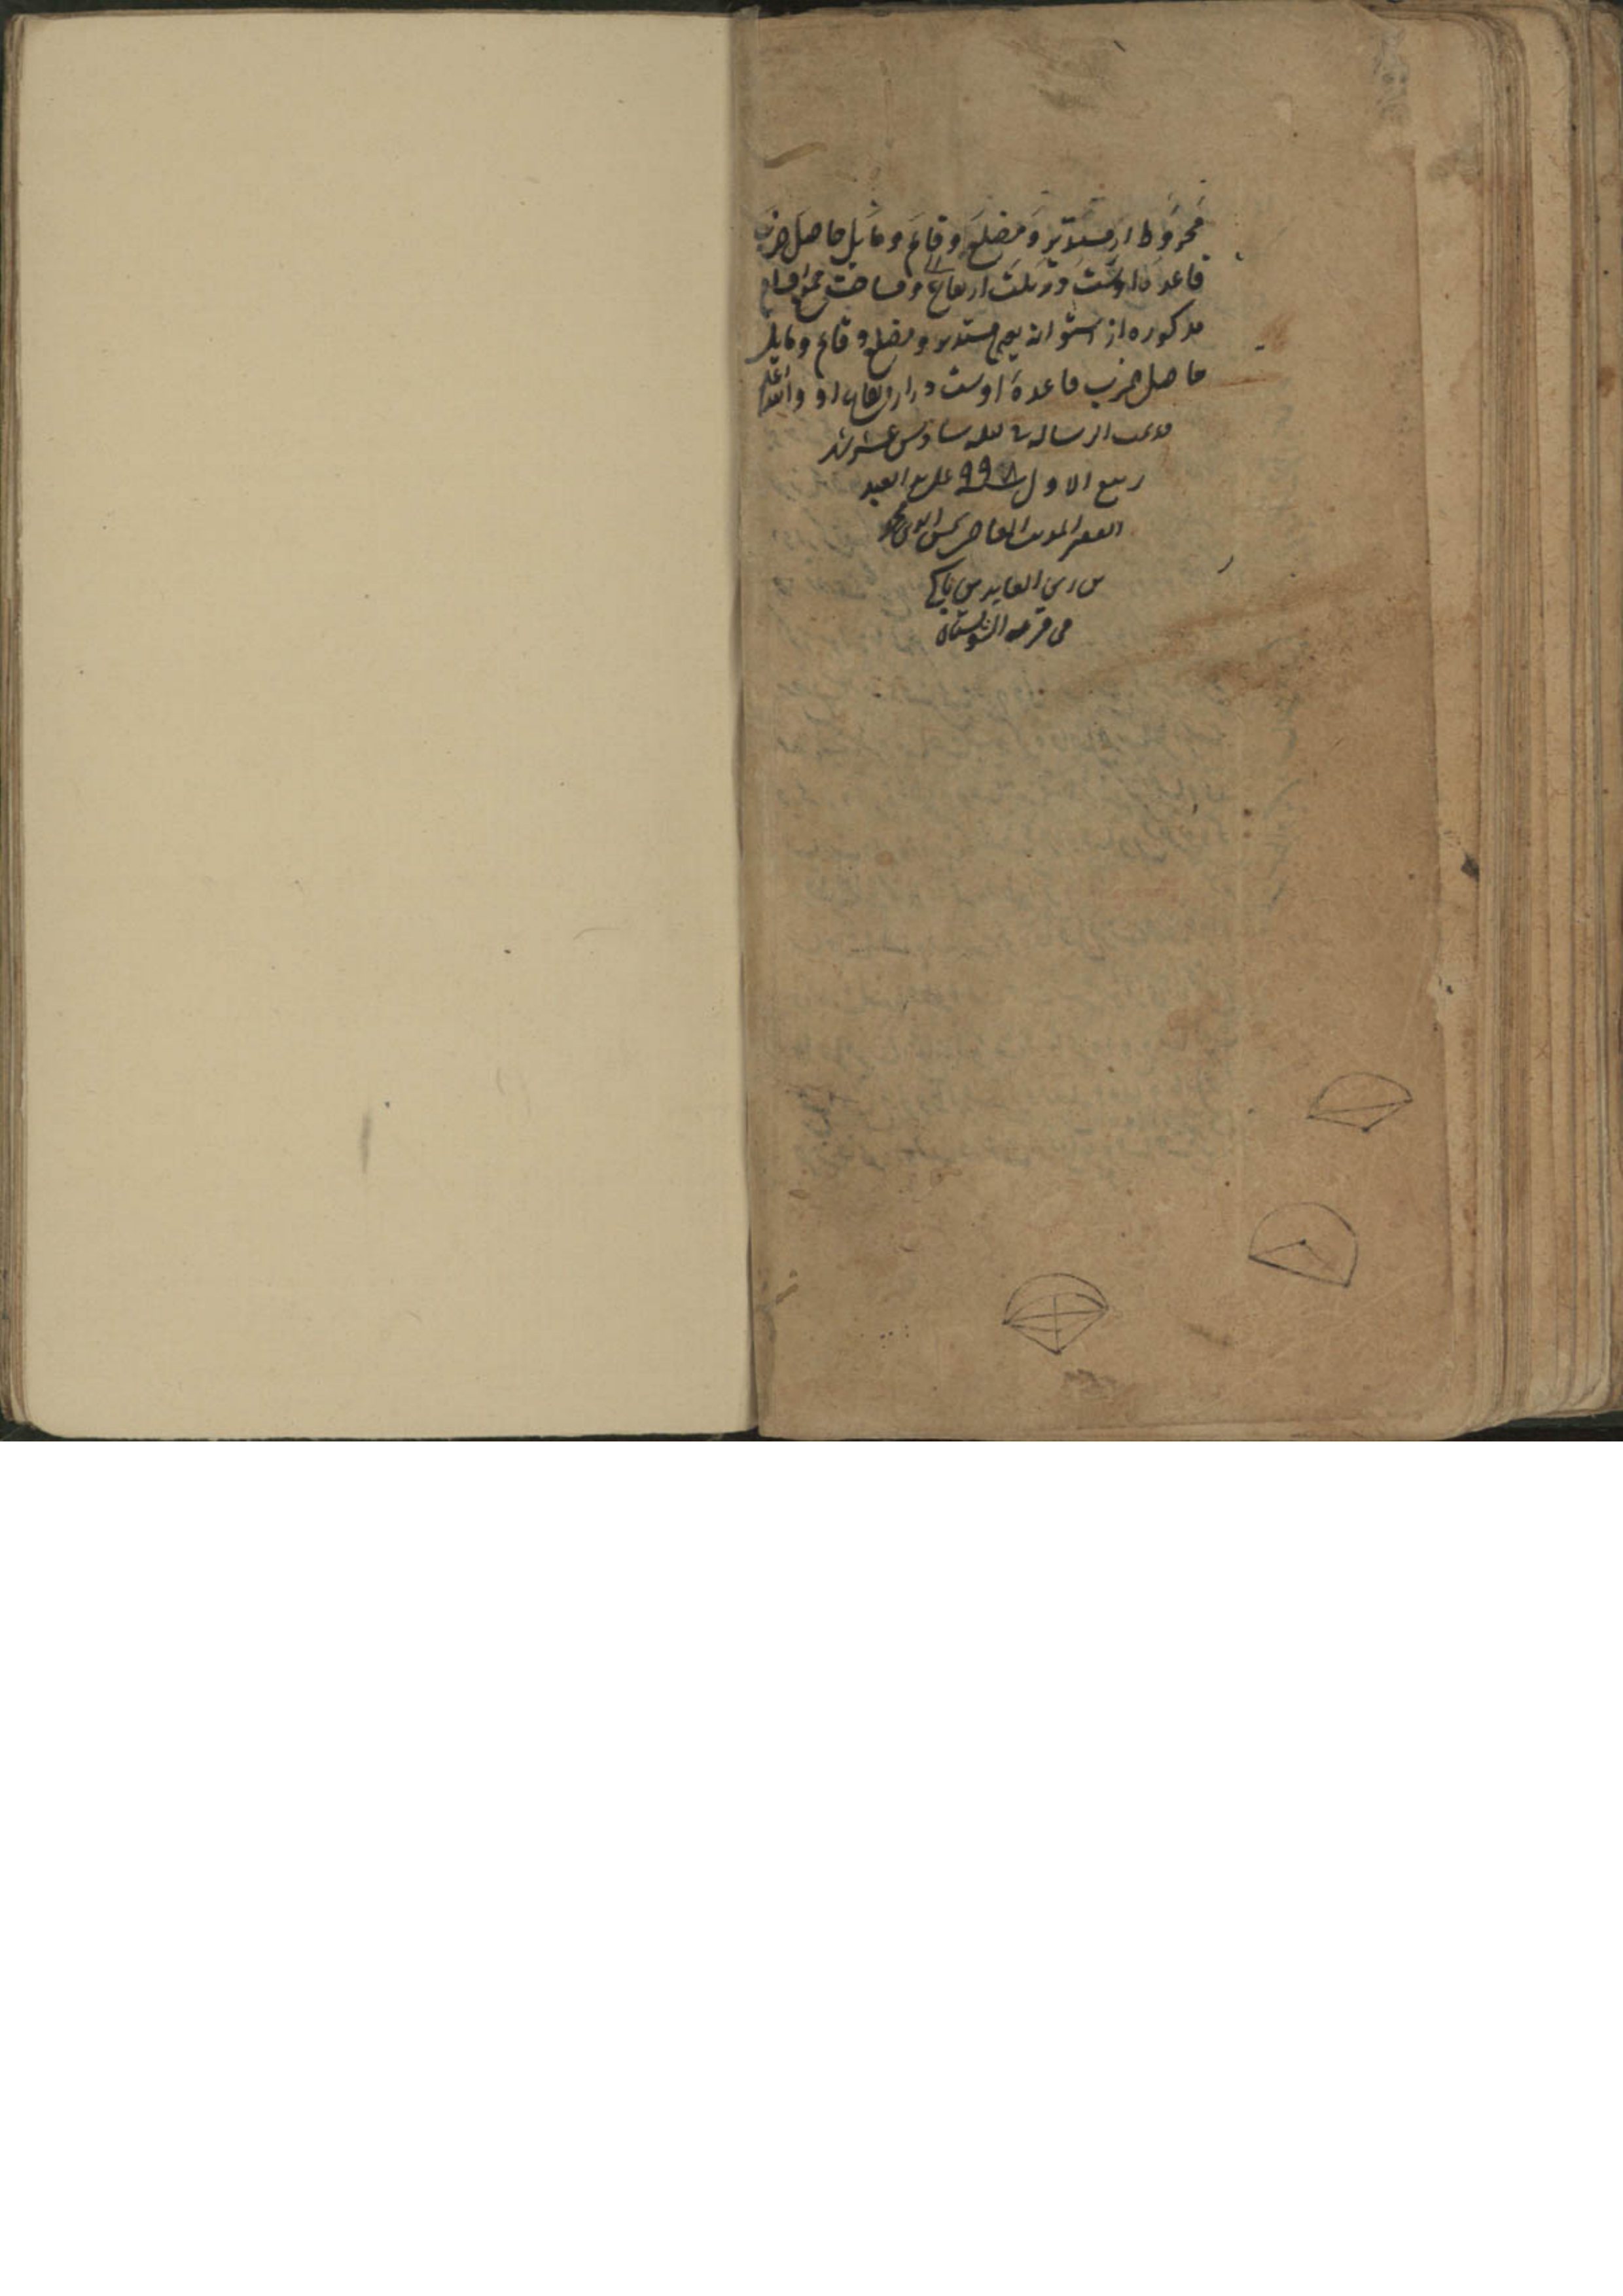 مخروط از مستدیر و مضلع و قایم و مایل حاصل ضرب
قاعده اوست در ثلث ارتفاع و مساحت جمیع اقسام
مذکوره از استوانه یعنی مستدیر و مضلع و قایم و مایل
حاصل ضرب قاعدهٔ اوست در ارتفاع او والله اعلم
قد تمت الرسالة لیلة سادس عشر شهر
ربیع الاول ۹۹۸ علی ید العبد
الفقیر المذنب العاصی
بن زین العابدین
فی قریة